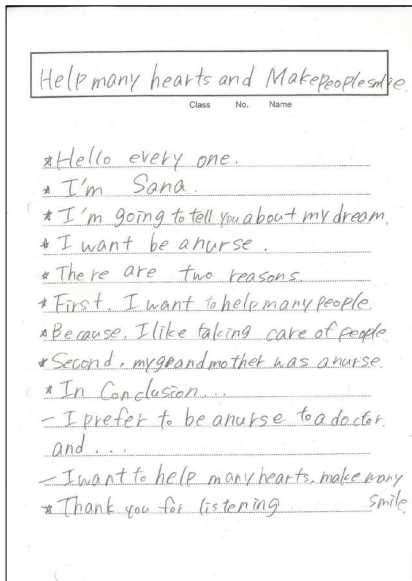 Help many hearts and Make people smile.
Class No. Name
* Hello every one.
* I'm Sana.
* I'm going to tell you about my dream.
* I want be a nurse.
* There are two reasons
* First. I want to help many people.
* Because, I like taking care of people
* Second, my grandmother was a nurse.
* In Conclusion...
- I prefer to be a nurse to a doctor.
and ...
- I want to help many hearts, make many
smile.
* Thank you for listening